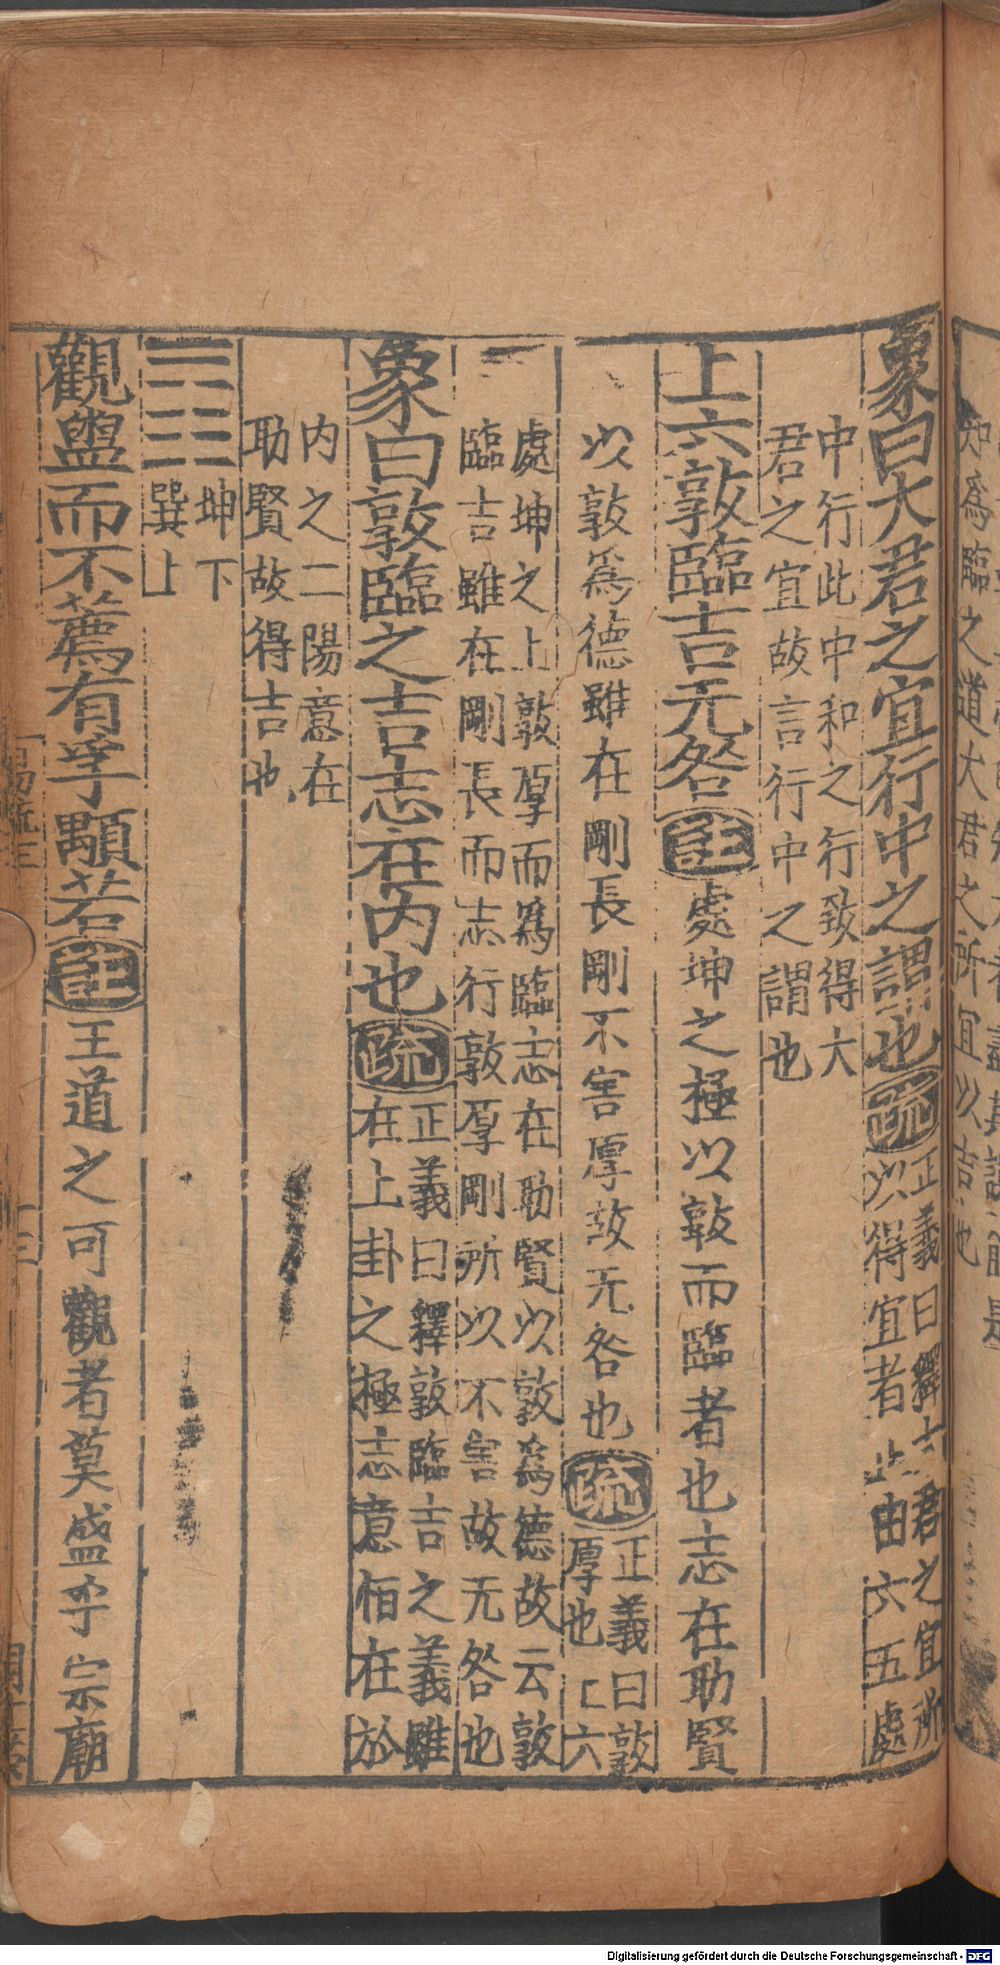 知為臨之道大君之所宜以吉也
象曰大君之宜行中之謂也疏正義曰釋大君之宜所
以得宜者止由六五處
中行此中和之行致得大
君之宜故言行中之謂也
上六敦臨吉无咎註處坤之極以敦而臨者也志在助賢
以敦爲德雖在剛長剛不害厚故无咎也疏正義曰敦
厚也上六
處坤之上敦厚而爲臨志在助賢以敦爲德故云敦
臨吉雖在剛長而志行敦厚剛所以不害故无咎也
象曰敦臨之吉志在內也疏正義曰釋敦臨吉之義雖
在上卦之極志意恒在於
内之二陽意在
助賢故得吉也
坤下
巽上
觀盥而不薦有孚顒若註王道之可觀者莫盛乎宗廟
易疏三
十三
Digitalisierung gefördert durch die Deutsche Forschungsgemeinschaft - DFG